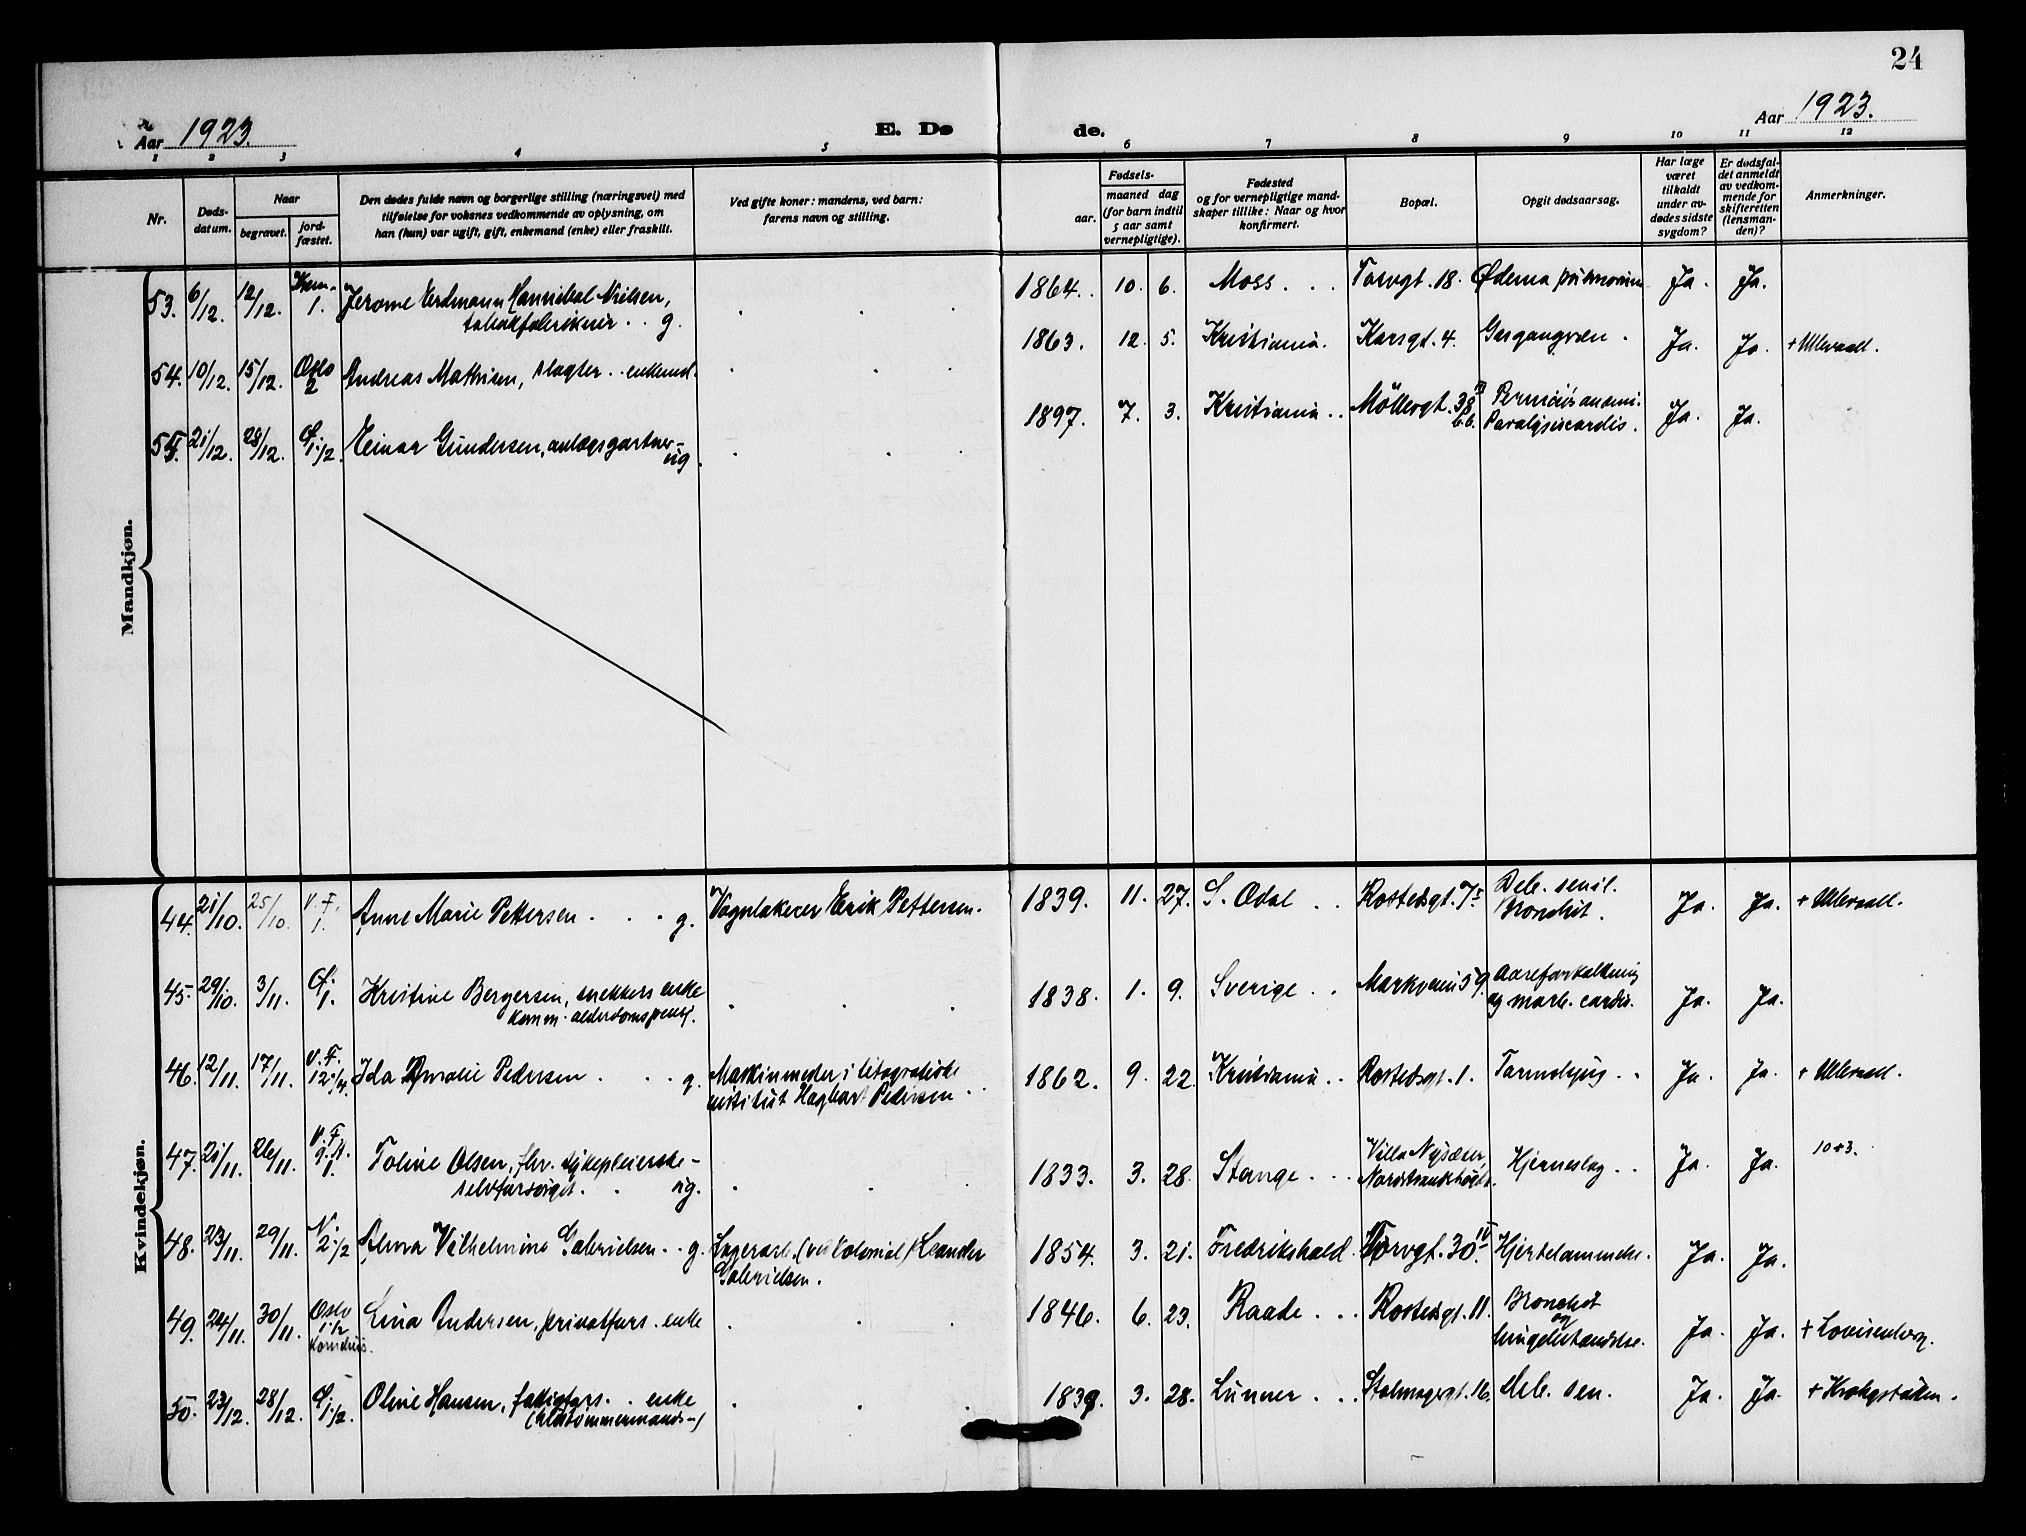 24
Aar 1923.
E. Dø
de.
Aar 1923.
1 2 3 4 5 6 7 8 9 10 11 12
Nr.
Døds-
datum.
Naar
begravet.
jord-
fæstet.
Den dødes fulde navn og borgerlige stilling (næringsvei) med
tilføielse for voksnes vedkommende av oplysning, om
han (hun) var ugift, gift, enkemand (enke) eller fraskilt.
Ved gifte koner: mandens, ved barn:
farens navn og stilling.
Fødsels-
aar.
maaned dag
(for barn indtil
5 aar samt
vernepligtige).
Fødested
og for vernepligtige mand-
skaper tillike: Naar og hvor
konfirmert.
Bopæl.
Opgit dødsaarsag.
Har læge
været
tilkaldt
under av-
dødes sidste
sygdom?
Er dødsfal-
det anmeldt
av vedkom-
mende for
skifteretten
(lensman-
den)?
Anmerkninger.
Mandkjøn.
53. 6/12. 12/12. Krem. 1. Jerome Erdmann Hannibal Nielsen, 1864. 10. 6. Moss . . . Torvgt. 18. Ødema pulmonum Ja. Ja.
tobakfabrikeier . . g.
54. 10/12. 15/12. Oslo 2 Andreas Mathisen, slagter . . enkemd. 1863. 12. 5. Kristiania. Korsgt. 4. Gasgangræn . Ja. Ja. + Ullevaal.
55. 21/12. 28/12. 1/2. Einar Gundersen, anlægsgartner - 1897. 7. 3. Kristiania . . Möllergt. 38 Ja. Ja.
ug.
Paralysis cordis.
Kvindekjøn.
44. 21/10. 25/10. V. F. 1. Anne Marie Pettersen . . . g. Vognlakerer Erik Pettersen. 1839. 11. 27. S. Odal . . Rostedsgt. 7 Deb. senil. Ja. Ja. + Ullevaal.
Bronchit .
45. 29/10. 3/11. 1. Kristine Bergersen, snekkers enke 1838. 1. 9. Sverige . . Markveien 59. Aareforkalkning Ja. Ja.
komm. alderdomspensj.
og morb. cordis.
46. 12/11. 17/11. V. F. Ida Amalie Pedersen . . . g. Maskinmester i litografiske 1862. 9. 22. Kristiania . . Rostedsgt. 1. Ja. Ja. + Ullevaal.
institut Hagbart Pedersen . .
47. 21/11. 26/11. V. F. 1. Toline Olsen, fhv. sykepleierske - 1833. 3. 28. Stange . . . Villa Hjerneslag . . Ja. Ja. 10+3.
selvforsørget . . ug.
Nordstrandshøgda.
48. 23/11. 29/11. N. 2 1/2 Alma Vilhelmine Gabrielsen . . g. Lagerarb. (ved kolonial) Leander 1854. 3. 21. Fredrikshald. Torvgt. 30 IV Hjertelammelse. Ja. Ja.
Gabrielsen .
49. 24/11. 30/11. Oslo 1 1/2 Lina Andersen, privatfors. enke 1846. 6. 23. Raade . . . Rostedsgt. 11. Bronchit Ja. Ja. + Lovisenberg.
og
lungebetændelse.
50. 23/12. 28/12. 1/2. Oline Hansen, fattigfors. . enke 1839. 3. 28. Lunner . . . Stolmagergt. 16. Deb. sen. Ja. Ja. + Krohgstøtten.